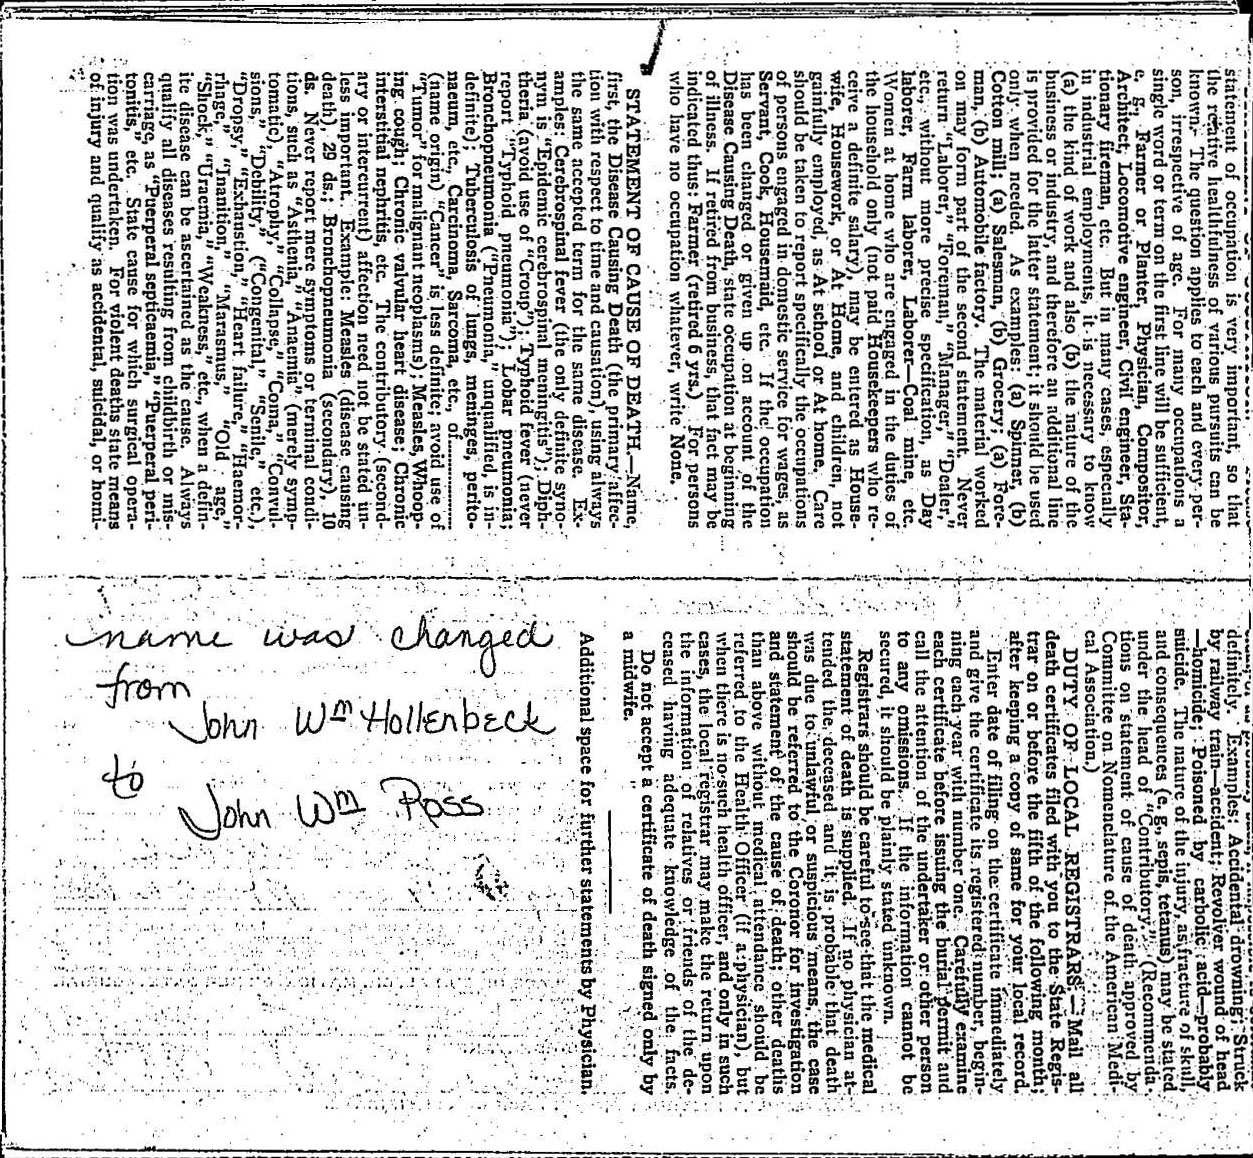 statement of occupation is very important, so that
the relative healthfulness of various pursuits can be
known. The question applies to each and every per-
son, irrespective of age. For many occupations a
single word or term on the first line will be sufficient,
e. g., Farmer or Planter, Physician, Compositor,
Architect, Locomotive engineer, Civil engineer, Sta-
tionary fireman, etc. But in many cases, especially
in industrial employments, it is necessary to know
(a) the kind of work and also (b) the nature of the
business or industry, and therefore an additional line
is provided for the latter statement; it should be used
only when needed. As examples: (a) Spinner, (b)
Cotton mill; (a) Salesman, (b) Grocery; (a) Fore-
man, (b) Automobile factory. The material worked
on may form part of the second statement. Never
return "Laborer," "Foreman," "Manager," "Dealer,"
etc., without more precise specification, as Day
laborer, Farm laborer, Laborer—Coal mine, etc.
Women at home who are engaged in the duties of
the household only (not paid Housekeepers who re-
ceive a definite salary), may be entered as House-
wife, Housework, or At Home, and children, not
gainfully employed, as At school or At home. Care
should be taken to report specifically the occupations
of persons engaged in domestic service for wages, as
Servant, Cook, Housemaid, etc. If the occupation
has been changed or given up on account of the
Disease Causing Death, state occupation at beginning
of illness. If retired from business, that fact may be
indicated thus: Farmer (retired 6 yrs.) For persons
who have no occupation whatever, write None.
STATEMENT OF CAUSE OF DEATH.—Name,
first, the Disease Causing Death (the primary affec-
tion with respect to time and causation), using always
the same accepted term for the same disease. Ex-
amples: Cerebrospinal fever (the only definite syno-
nym is "Epidemic cerebrospinal meningitis"); Diph-
theria (avoid use of "Croup"); Typhoid fever (never
report "Typhoid pneumonia"); Lobar pneumonia;
Bronchopneumonia ("Pneumonia," unqualified, is in-
definite); Tuberculosis of lungs, meninges, perito-
naeum, etc., Carcinoma, Sarcoma, etc., of............
(name origin) "Cancer" is less definite; avoid use of
"Tumor" for malignant neoplasms); Measles, Whoop-
ing cough; Chronic valvular heart disease; Chronic
interstitial nephritis, etc. The contributory (second-
ary or intercurrent) affection need not be stated un-
less important. Example: Measles (disease causing
death), 29 ds.; Bronchopneumonia (secondary), 10
ds. Never report mere symptoms or terminal condi-
tions, such as "Asthenia," "Anaemia" (merely symp-
tomatic), "Atrophy," "Collapse," "Coma," "Convul-
sions," "Debility" ("Congenital" "Senile," etc.),
"Dropsy," "Exhaustion," "Heart failure," "Haemor-
rhage," "Inanition," "Marasmus," "Old age,"
"Shock," "Uraemia," "Weakness," etc., when a defin-
ite disease can be ascertained as the cause. Always
qualify all diseases resulting from childbirth or mis-
carriage, as "Puerperal septicaemia," "Puerperal peri-
tonitis," etc. State cause for which surgical opera-
tion was undertaken. For violent deaths state means
of injury and qualify as accidental, suicidal, or homi-
definitely. Examples: Accidental drowning; Struck
by railway train—accident; Revolver wound of head
—homicide; Poisoned by carbolic acid—probably
suicide. The nature of the injury, as fracture of skull,
and consequences (e. g., sepsis, tetanus) may be stated
under the head of "Contributory." (Recommenda-
tions on statement of cause of death approved by
Committee on Nomenclature of the American Medi-
cal Association.)
DUTY OF LOCAL REGISTRARS.—Mail all
death certificates filed with you to the State Regis-
trar on or before the fifth of the following month;
after keeping a copy of same for your local record.
Enter date of filing on the certificate immediately
and give the certificate its registered number, begin-
ning each year with number one. Carefully examine
each certificate before issuing the burial permit and
call the attention of the undertaker or other person
to any omissions. If the information cannot be
secured, it should be plainly stated unknown.
Registrars should be careful to see that the medical
statement of death is supplied. If no physician at-
tended the deceased and it is probable that death
was due to unlawful or suspicious means, the case
should be referred to the Coroner for investigation
and statement of the cause of death; other deaths
than above without medical attendance should be
referred to the Health Officer (if a physician), but
when there is no such health officer, and only in such
cases, the local registrar may make the return upon
the information of relatives or friends of the de-
ceased having adequate knowledge of the facts.
Do not accept a certificate of death signed only by
a midwife.
Additional space for further statements by Physician.
name was changed
from
John Wm Hollenbeck
to
John Wm Ross